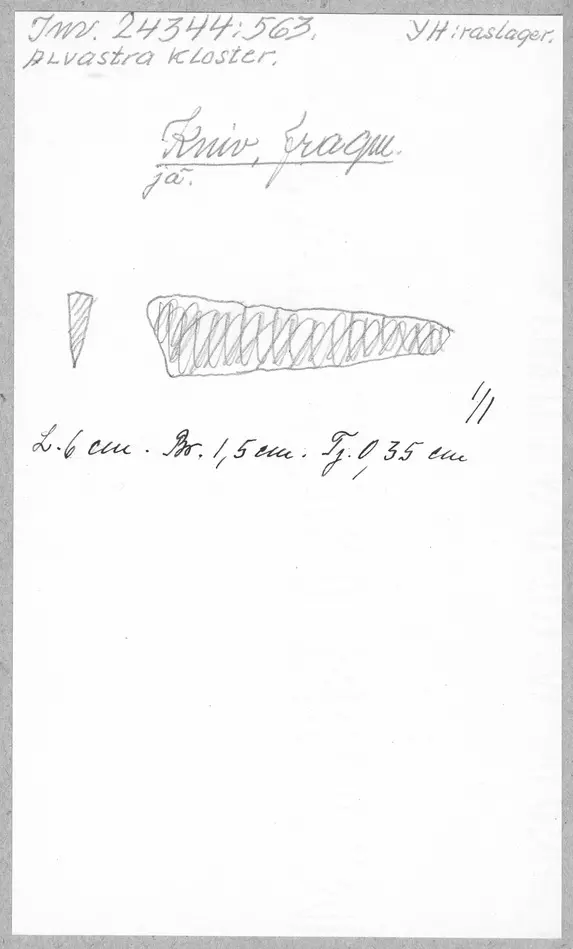 Inv. 24344:563. YH:raslager.
Alvastra Kloster.
Kniv, fragm.
jä.
1/1
L. 6 cm. Br. 1,5 cm. Tj. 0,35 cm